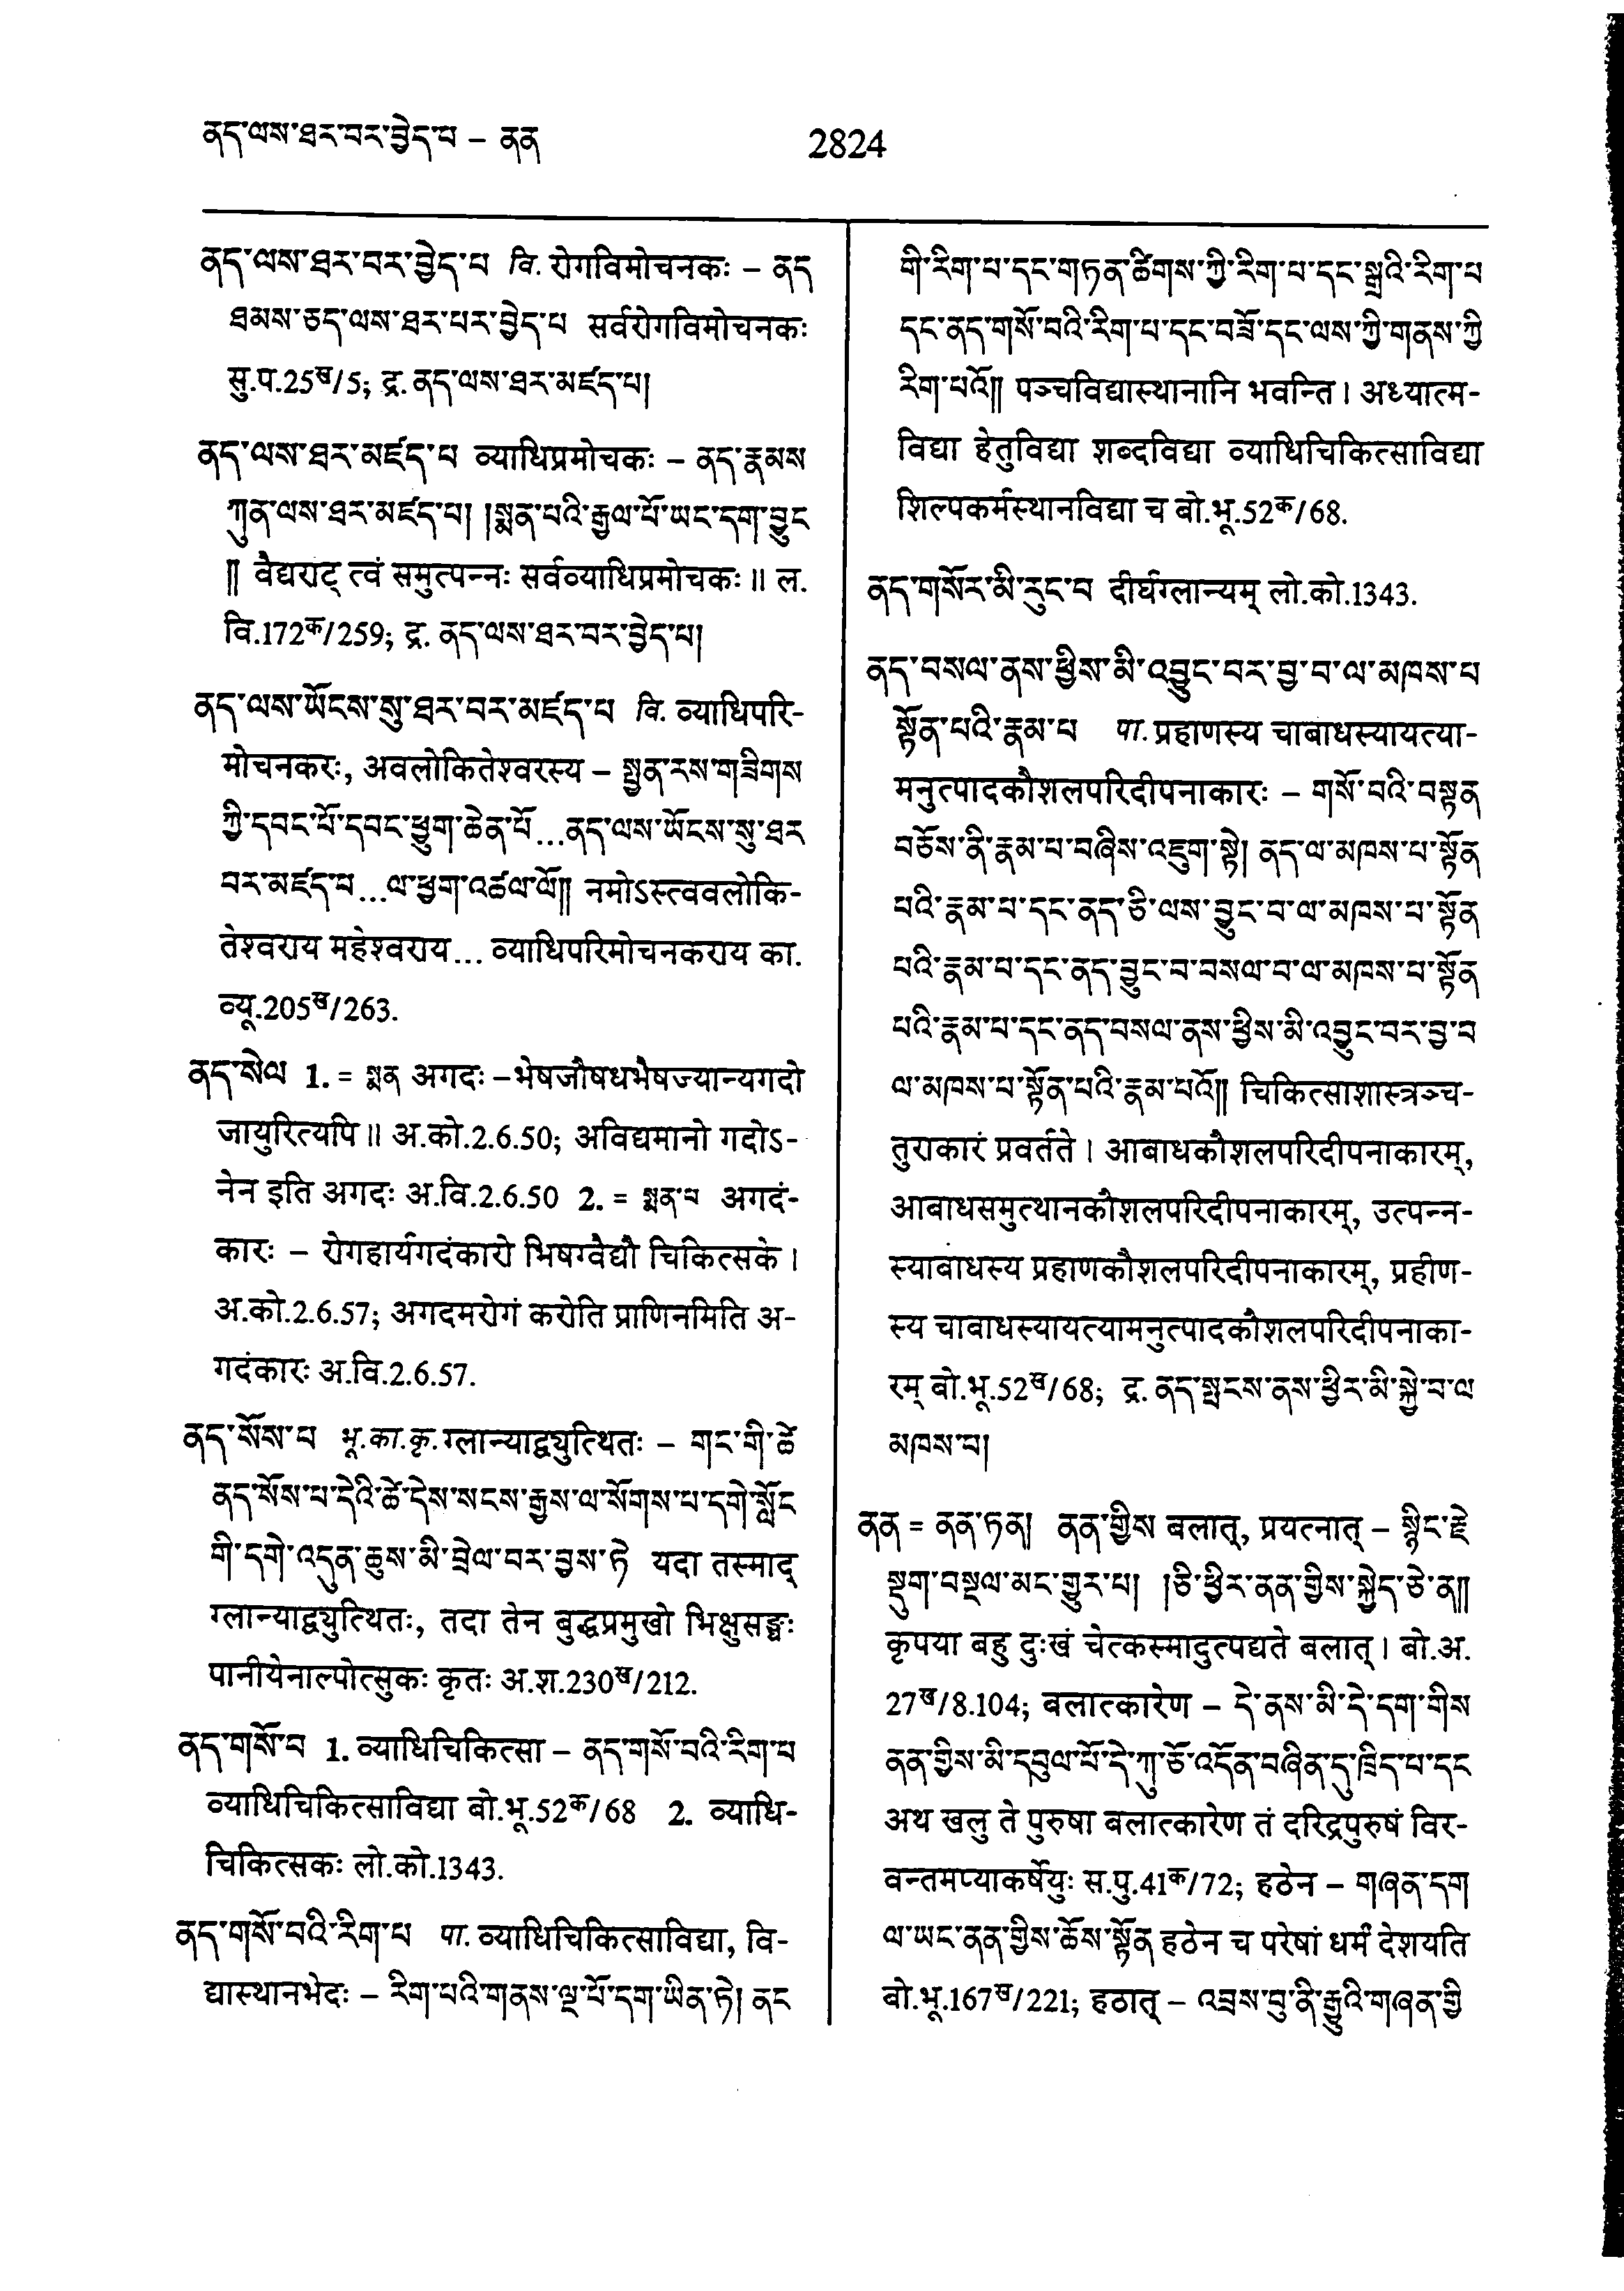 ནད་ལས་ཐར་བར་བྱེད་པ – ནན
2824
ནད་ལས་ཐར་བར་བྱེད་པ वि. रोगविमोचनकः – ནད
ཐམས་ཅད་ལས་ཐར་པར་བྱེད་པ सर्वरोगविमोचनकः
सु.प.25ख/5; द्र. ནད་ལས་ཐར་མཛད་པ།
ནད་ལས་ཐར་མཛད་པ व्याधिप्रमोचकः – ནད་རྣམས
ཀུན་ལས་ཐར་མཛད་པ། །སྨན་པའི་རྒྱལ་པོ་ཡང་དག་བྱུང
༎ वैद्यराट् त्वं समुत्पन्नः सर्वव्याधिप्रमोचकः ॥ ल.
वि.172क/259; द्र. ནད་ལས་ཐར་བར་བྱེད་པ།
ནད་ལས་ཡོངས་སུ་ཐར་བར་མཛད་པ वि. व्याधिपरि-
मोचनकरः, अवलोकितेश्वरस्य – སྤྱན་རས་གཟིགས
ཀྱི་དབང་པོ་དབང་ཕྱུག་ཆེན་པོ...ནད་ལས་ཡོངས་སུ་ཐར
བར་མཛད་པ...ལ་ཕྱག་འཚལ་ལོ༎ नमोऽस्त्ववलोकि-
तेश्वराय महेश्वराय... व्याधिपरिमोचनकराय का.
व्यू.205ख/263.
ནད་སེལ 1. = སྨན अगदः –भेषजौषधभैषज्यान्यगदो
जायुरित्यपि ॥ अ.को.2.6.50; अविद्यमानो गदोऽ-
नेन इति अगदः अ.वि.2.6.50 2. = སྨན་པ अगदं-
कारः – रोगहार्यगदंकारो भिषग्वैद्यौ चिकित्सके ।
अ.को.2.6.57; अगदमरोगं करोति प्राणिनमिति अ-
गदंकारः अ.वि.2.6.57.
ནད་སོས་པ भू.का.कृ. ग्लान्याद्व्युत्थितः – གང་གི་ཚེ
ནད་སོས་པ་དེའི་ཚེ་དེས་སངས་རྒྱས་ལ་སོགས་པ་དགེ་སློང
གི་དགེ་འདུན་ཆུས་མི་བྲེལ་བར་བྱས་ཏེ यदा तस्माद्
ग्लान्याद्व्युत्थितः, तदा तेन बुद्धप्रमुखो भिक्षुसङ्घः
पानीयेनाल्पोत्सुकः कृतः अ.श.230ख/212.
ནད་གསོ་བ 1. व्याधिचिकित्सा – ནད་གསོ་བའི་རིག་པ
व्याधिचिकित्साविद्या बो.भू.52क/68 2. व्याधि-
चिकित्सकः लो.को.1343.
ནད་གསོ་བའི་རིག་པ पा. व्याधिचिकित्साविद्या, वि-
द्यास्थानभेदः – རིག་པའི་གནས་ལྔ་པོ་དག་ཡིན་ཏེ། ནང
གི་རིག་པ་དང་གཏན་ཚིགས་ཀྱི་རིག་པ་དང་སྒྲའི་རིག་པ
དང་ནད་གསོ་བའི་རིག་པ་དང་བཟོ་དང་ལས་ཀྱི་གནས་ཀྱི
རིག་པའོ༎ पञ्चविद्यास्थानानि भवन्ति । अध्यात्म-
विद्या हेतुविद्या शब्दविद्या व्याधिचिकित्साविद्या
शिल्पकर्मस्थानविद्या च बो.भू.52क/68.
ནད་གསོར་མི་རུང་བ दीर्घग्लान्यम् लो.को.1343.
ནད་བསལ་ནས་ཕྱིས་མི་འབྱུང་བར་བྱ་བ་ལ་མཁས་པ
སྟོན་པའི་རྣམ་པ पा. प्रहाणस्य चाबाधस्यायत्या-
मनुत्पादकौशलपरिदीपनाकारः – གསོ་བའི་བསྟན
བཅོས་ནི་རྣམ་པ་བཞིས་འཇུག་སྟེ། ནད་ལ་མཁས་པ་སྟོན
པའི་རྣམ་པ་དང་ནད་ཅི་ལས་བྱུང་བ་ལ་མཁས་པ་སྟོན
པའི་རྣམ་པ་དང་ནད་བྱུང་བ་བསལ་བ་ལ་མཁས་པ་སྟོན
པའི་རྣམ་པ་དང་ནད་བསལ་ནས་ཕྱིས་མི་འབྱུང་བར་བྱ་བ
ལ་མཁས་པ་སྟོན་པའི་རྣམ་པའོ༎ चिकित्साशास्त्रञ्च-
तुराकारं प्रवर्तते । आबाधकौशलपरिदीपनाकारम्,
आबाधसमुत्थानकौशलपरिदीपनाकारम्, उत्पन्न-
स्याबाधस्य प्रहाणकौशलपरिदीपनाकारम्, प्रहीण-
स्य चाबाधस्यायत्यामनुत्पादकौशलपरिदीपनाका-
रम् बो.भू.52ख/68; द्र. ནད་སྤངས་ནས་ཕྱིར་མི་སྐྱེ་བ་ལ
མཁས་པ།
ནན = ནན་ཏན། ནན་གྱིས बलात्, प्रयत्नात् – སྙིང་རྗེ
སྡུག་བསྔལ་མང་གྱུར་པ། །ཅི་ཕྱིར་ནན་གྱིས་སྐྱེད་ཅེ་ན༎
कृपया बहु दुःखं चेत्कस्मादुत्पद्यते बलात् । बो.अ.
27ख/8.104; बलात्कारेण – དེ་ནས་མི་དེ་དག་གིས
ནན་གྱིས་མི་དབུལ་པོ་དེ་ཀུ་ཅོ་འདོན་བཞིན་དུ་ཁྲིད་པ་དང
अथ खलु ते पुरुषा बलात्कारेण तं दरिद्रपुरुषं विर-
वन्तमप्याकर्षेयुः स.पु.41क/72; हठेन – གཞན་དག
ལ་ཡང་ནན་གྱིས་ཆོས་སྟོན हठेन च परेषां धर्मं देशयति
बो.भू.167ख/221; हठात् – འབྲས་བུ་ནི་རྒྱུའི་གཞན་གྱི